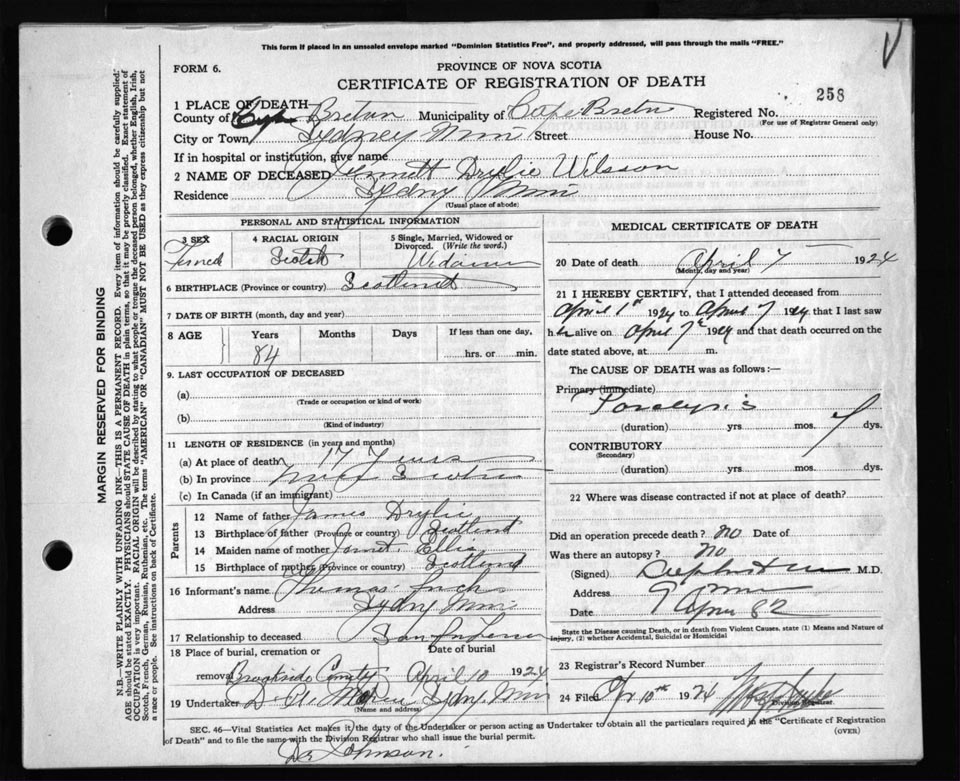 This form if placed in an unsealed envelope marked "Dominion Statistics Free", and properly addressed, will pass through the mails "FREE."
FORM 6.
PROVINCE OF NOVA SCOTIA
CERTIFICATE OF REGISTRATION OF DEATH
258
1 PLACE OF DEATH
County of Cape Breton Municipality of Cape Breton Registered No.
(For use of Registrar General only)
City or Town Sydney Mines Street House No.
If in hospital or institution, give name
2 NAME OF DECEASED Jennett Drylie Wilson
Residence Sydney Mines
(Usual place of abode)
PERSONAL AND STATISTICAL INFORMATION
3 SEX
4 RACIAL ORIGIN
5 Single, Married, Widowed or Divorced. (Write the word.)
Scotch
6 BIRTHPLACE (Province or country) Scotland
7 DATE OF BIRTH (month, day and year)
8 AGE
Years
Months
Days
If less than one day,
84
hrs. or min.
9. LAST OCCUPATION OF DECEASED
(a)
(Trade or occupation or kind of work)
(b)
(Kind of industry)
11 LENGTH OF RESIDENCE (in years and months)
(a) At place of death 17 Years
(b) In province Nova Scotia
(c) In Canada (if an immigrant)
Parents
12 Name of father James Drylie
13 Birthplace of father (Province or country) Scotland
14 Maiden name of mother Janet Ellis
15 Birthplace of mother (Province or country) Scotland
16 Informant's name Thomas
Address Sydney Mines
17 Relationship to deceased Son in law
18 Place of burial, cremation or
Date of burial
removal Brookside Cemetery April 10 1924
19 Undertaker Sydney Mines
(Name and address)
MEDICAL CERTIFICATE OF DEATH
20 Date of death April 7 1924
(Month, day and year)
21 I HEREBY CERTIFY, that I attended deceased from
April 1st 1924 to April 7 1924 that I last saw
her alive on April 7th 1924 and that death occurred on the
date stated above, at m.
The CAUSE OF DEATH was as follows:—
Primary (immediate)
Paralysis
(duration) yrs. mos. 7 dys.
CONTRIBUTORY
(Secondary)
(duration) yrs. mos. dys.
22 Where was disease contracted if not at place of death?
Did an operation precede death? No Date of
Was there an autopsy? No
(Signed) M.D.
Address
Date
State the Disease causing Death, or in death from Violent Causes, state (1) Means and Nature of
Injury, (2) whether Accidental, Suicidal or Homicidal
23 Registrar's Record Number
24 Filed 10th 1924
Division Registrar.
SEC. 46—Vital Statistics Act makes it the duty of the Undertaker or person acting as Undertaker to obtain all the particulars required in the "Certificate of Registration
of Death" and to file the same with the Division Registrar who shall issue the burial permit.
(OVER)
Dr Johnson.
MARGIN RESERVED FOR BINDING
N.B.—WRITE PLAINLY WITH UNFADING INK—THIS IS A PERMANENT RECORD. Every item of information should be carefully supplied.
AGE should be stated EXACTLY. PHYSICIANS should STATE CAUSE OF DEATH in plain terms, so that it may be properly classified. Exact statement of
OCCUPATION is very important. RACIAL ORIGIN will be described by stating to what people or tongue the deceased person belonged, whether English, Irish,
Scotch, French, German, Russian, Ruthenian, etc. The terms "AMERICAN" OR "CANADIAN" MUST NOT BE USED as they express citizenship but not
a race or people. See instructions on back of Certificate.